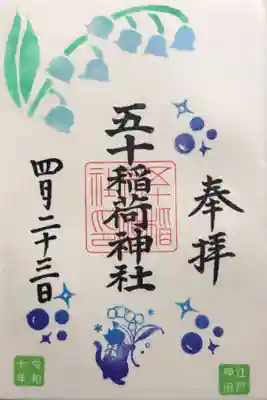 奉拝
五十稲荷神社
四月二十三日
江戸
神田